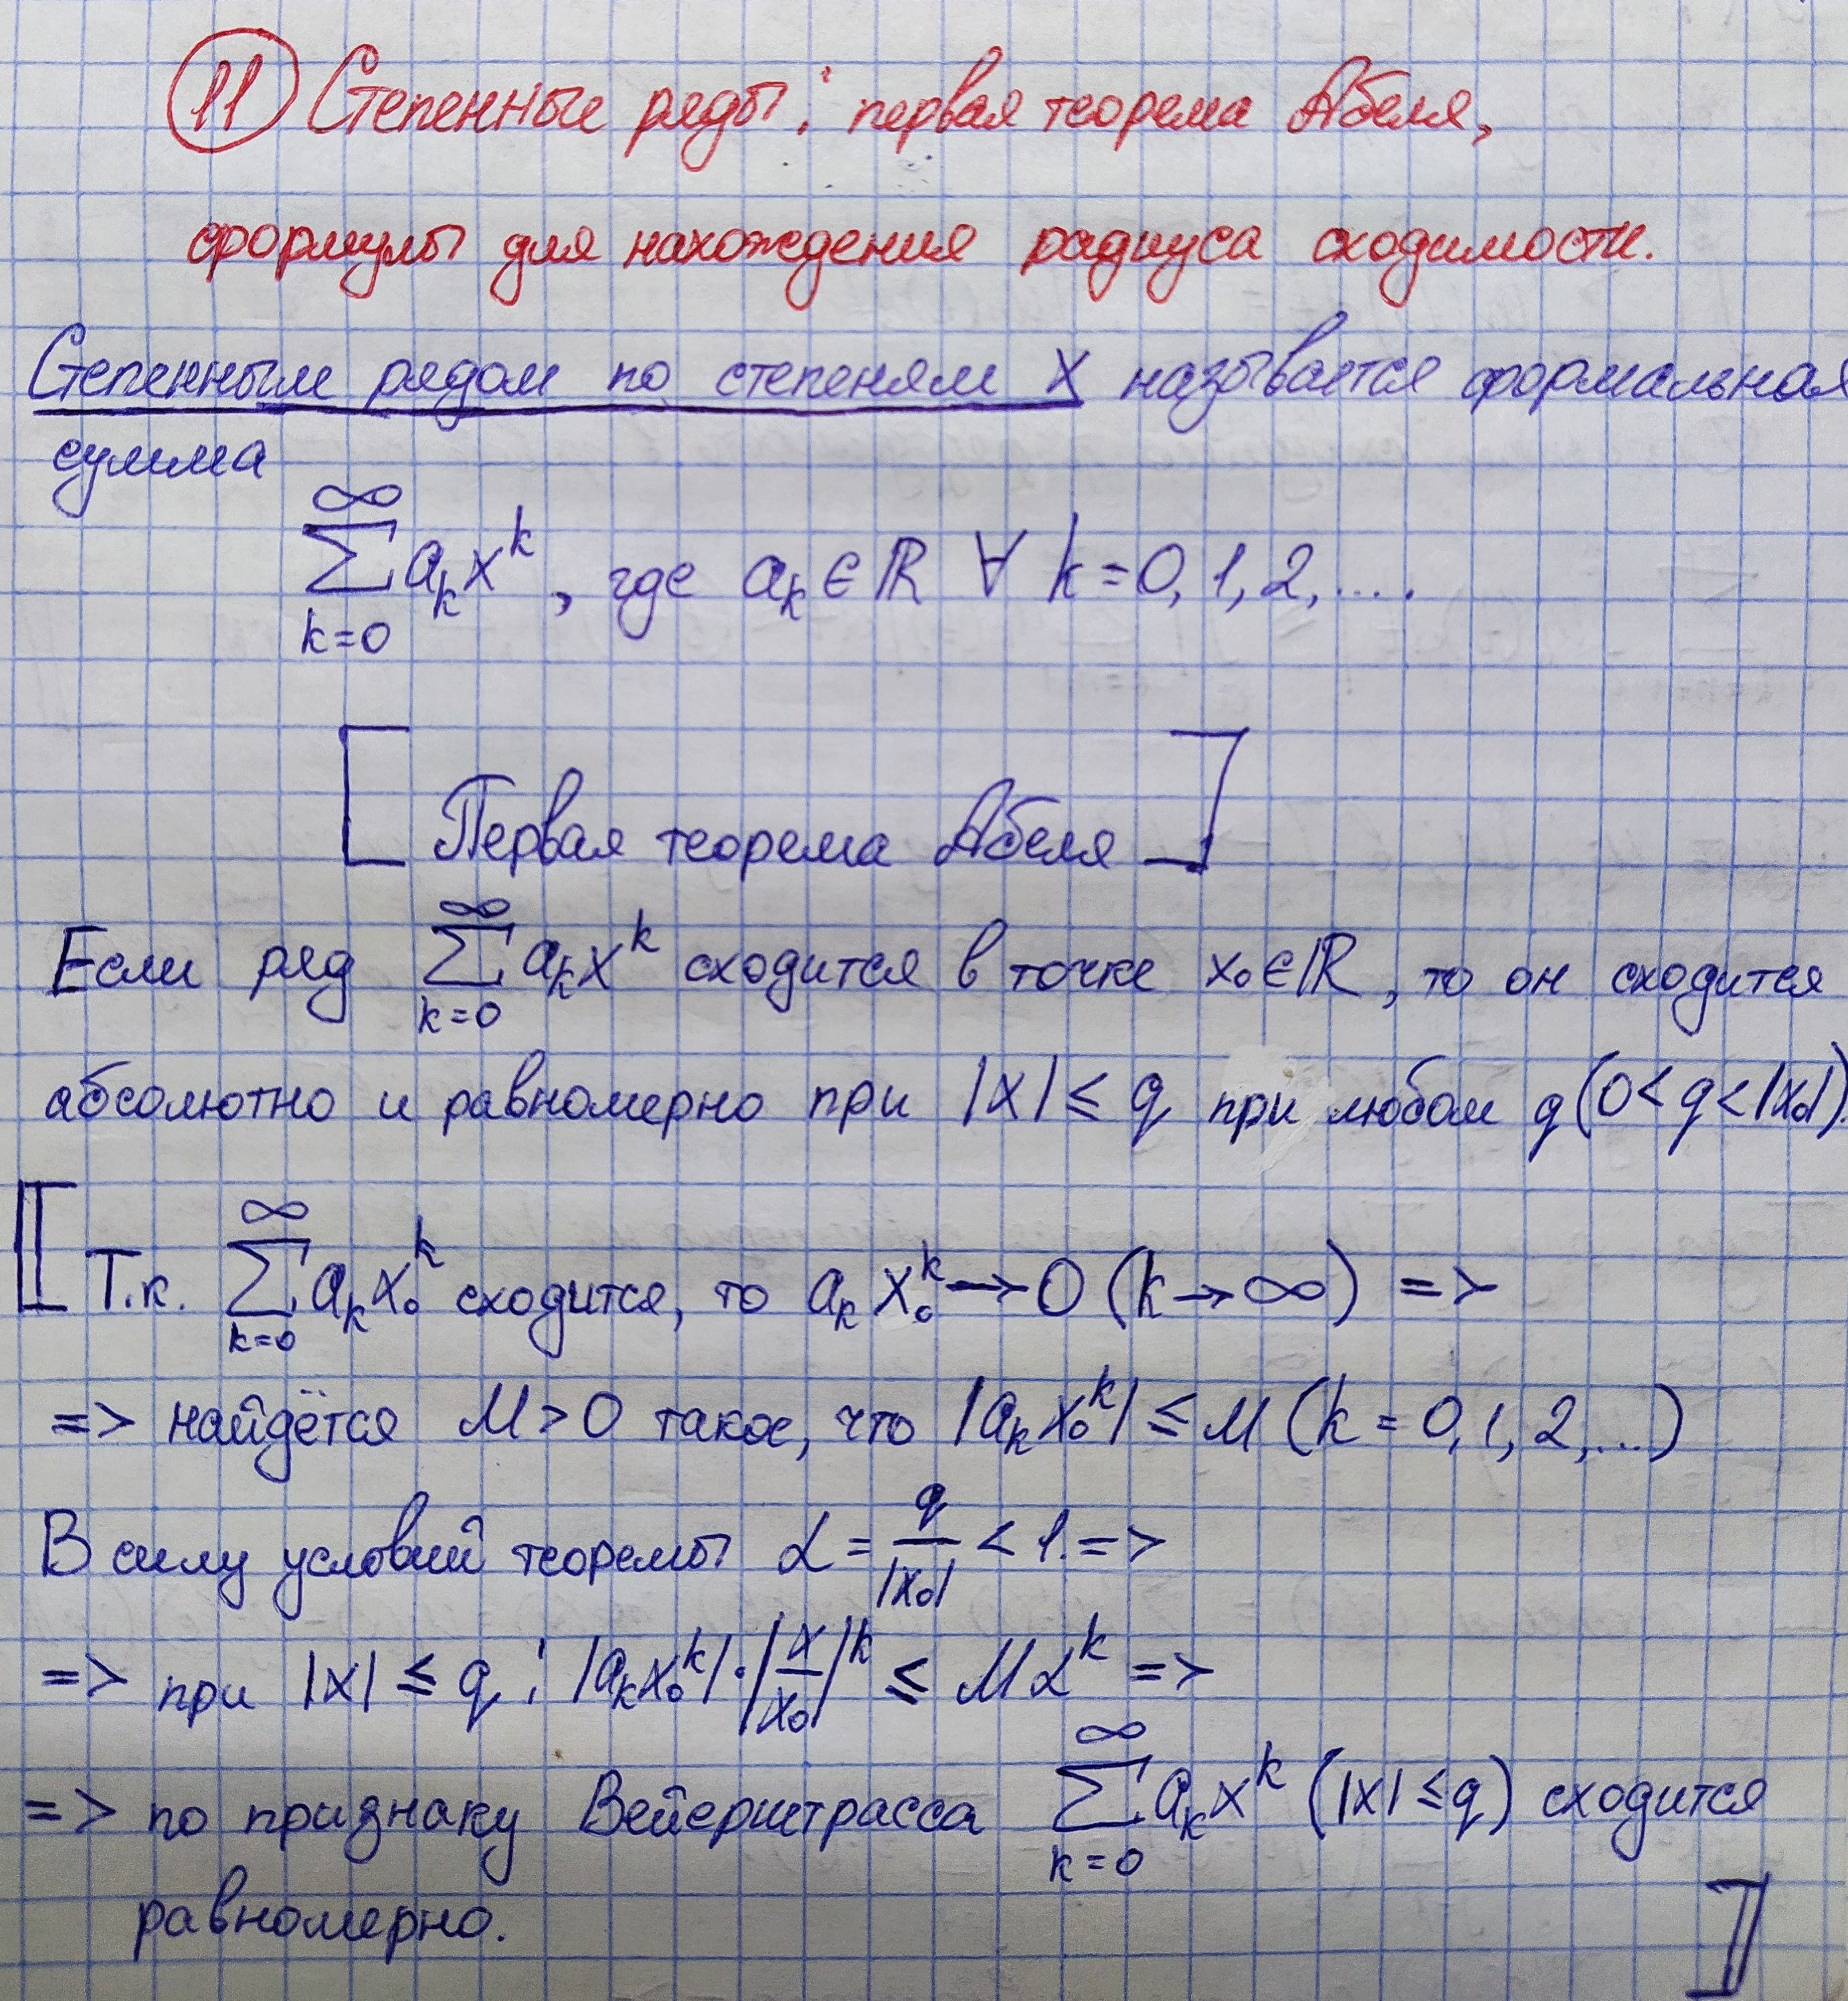 11 Степенные ряды: первая теорема Абеля,
формулы для нахождения радиуса сходимости.
Степенным рядом по степеням X называется формальная
сумма
∑_{k=0}^{∞} a_k x^k, где a_k ∈ ℝ ∀ k=0, 1, 2, ....
[ Первая теорема Абеля ]
Если ряд ∑_{k=0}^{∞} a_k x^k сходится в точке x₀ ∈ ℝ, то он сходится
абсолютно и равномерно при |x| ≤ q при любом q (0 < q < |x₀|).
[[ Т.к. ∑_{k=0}^{∞} a_k x₀^k сходится, то a_k x₀^k → 0 (k → ∞) =>
=> найдётся M > 0 такое, что |a_k x₀^k| ≤ M (k = 0, 1, 2, ...)
В силу условий теоремы α = q/|x₀| < 1. =>
=> при |x| ≤ q : |a_k x₀^k| · |x/x₀|^k ≤ M α^k =>
=> по признаку Вейерштрасса ∑_{k=0}^{∞} a_k x^k (|x| ≤ q) сходится
равномерно. ]]